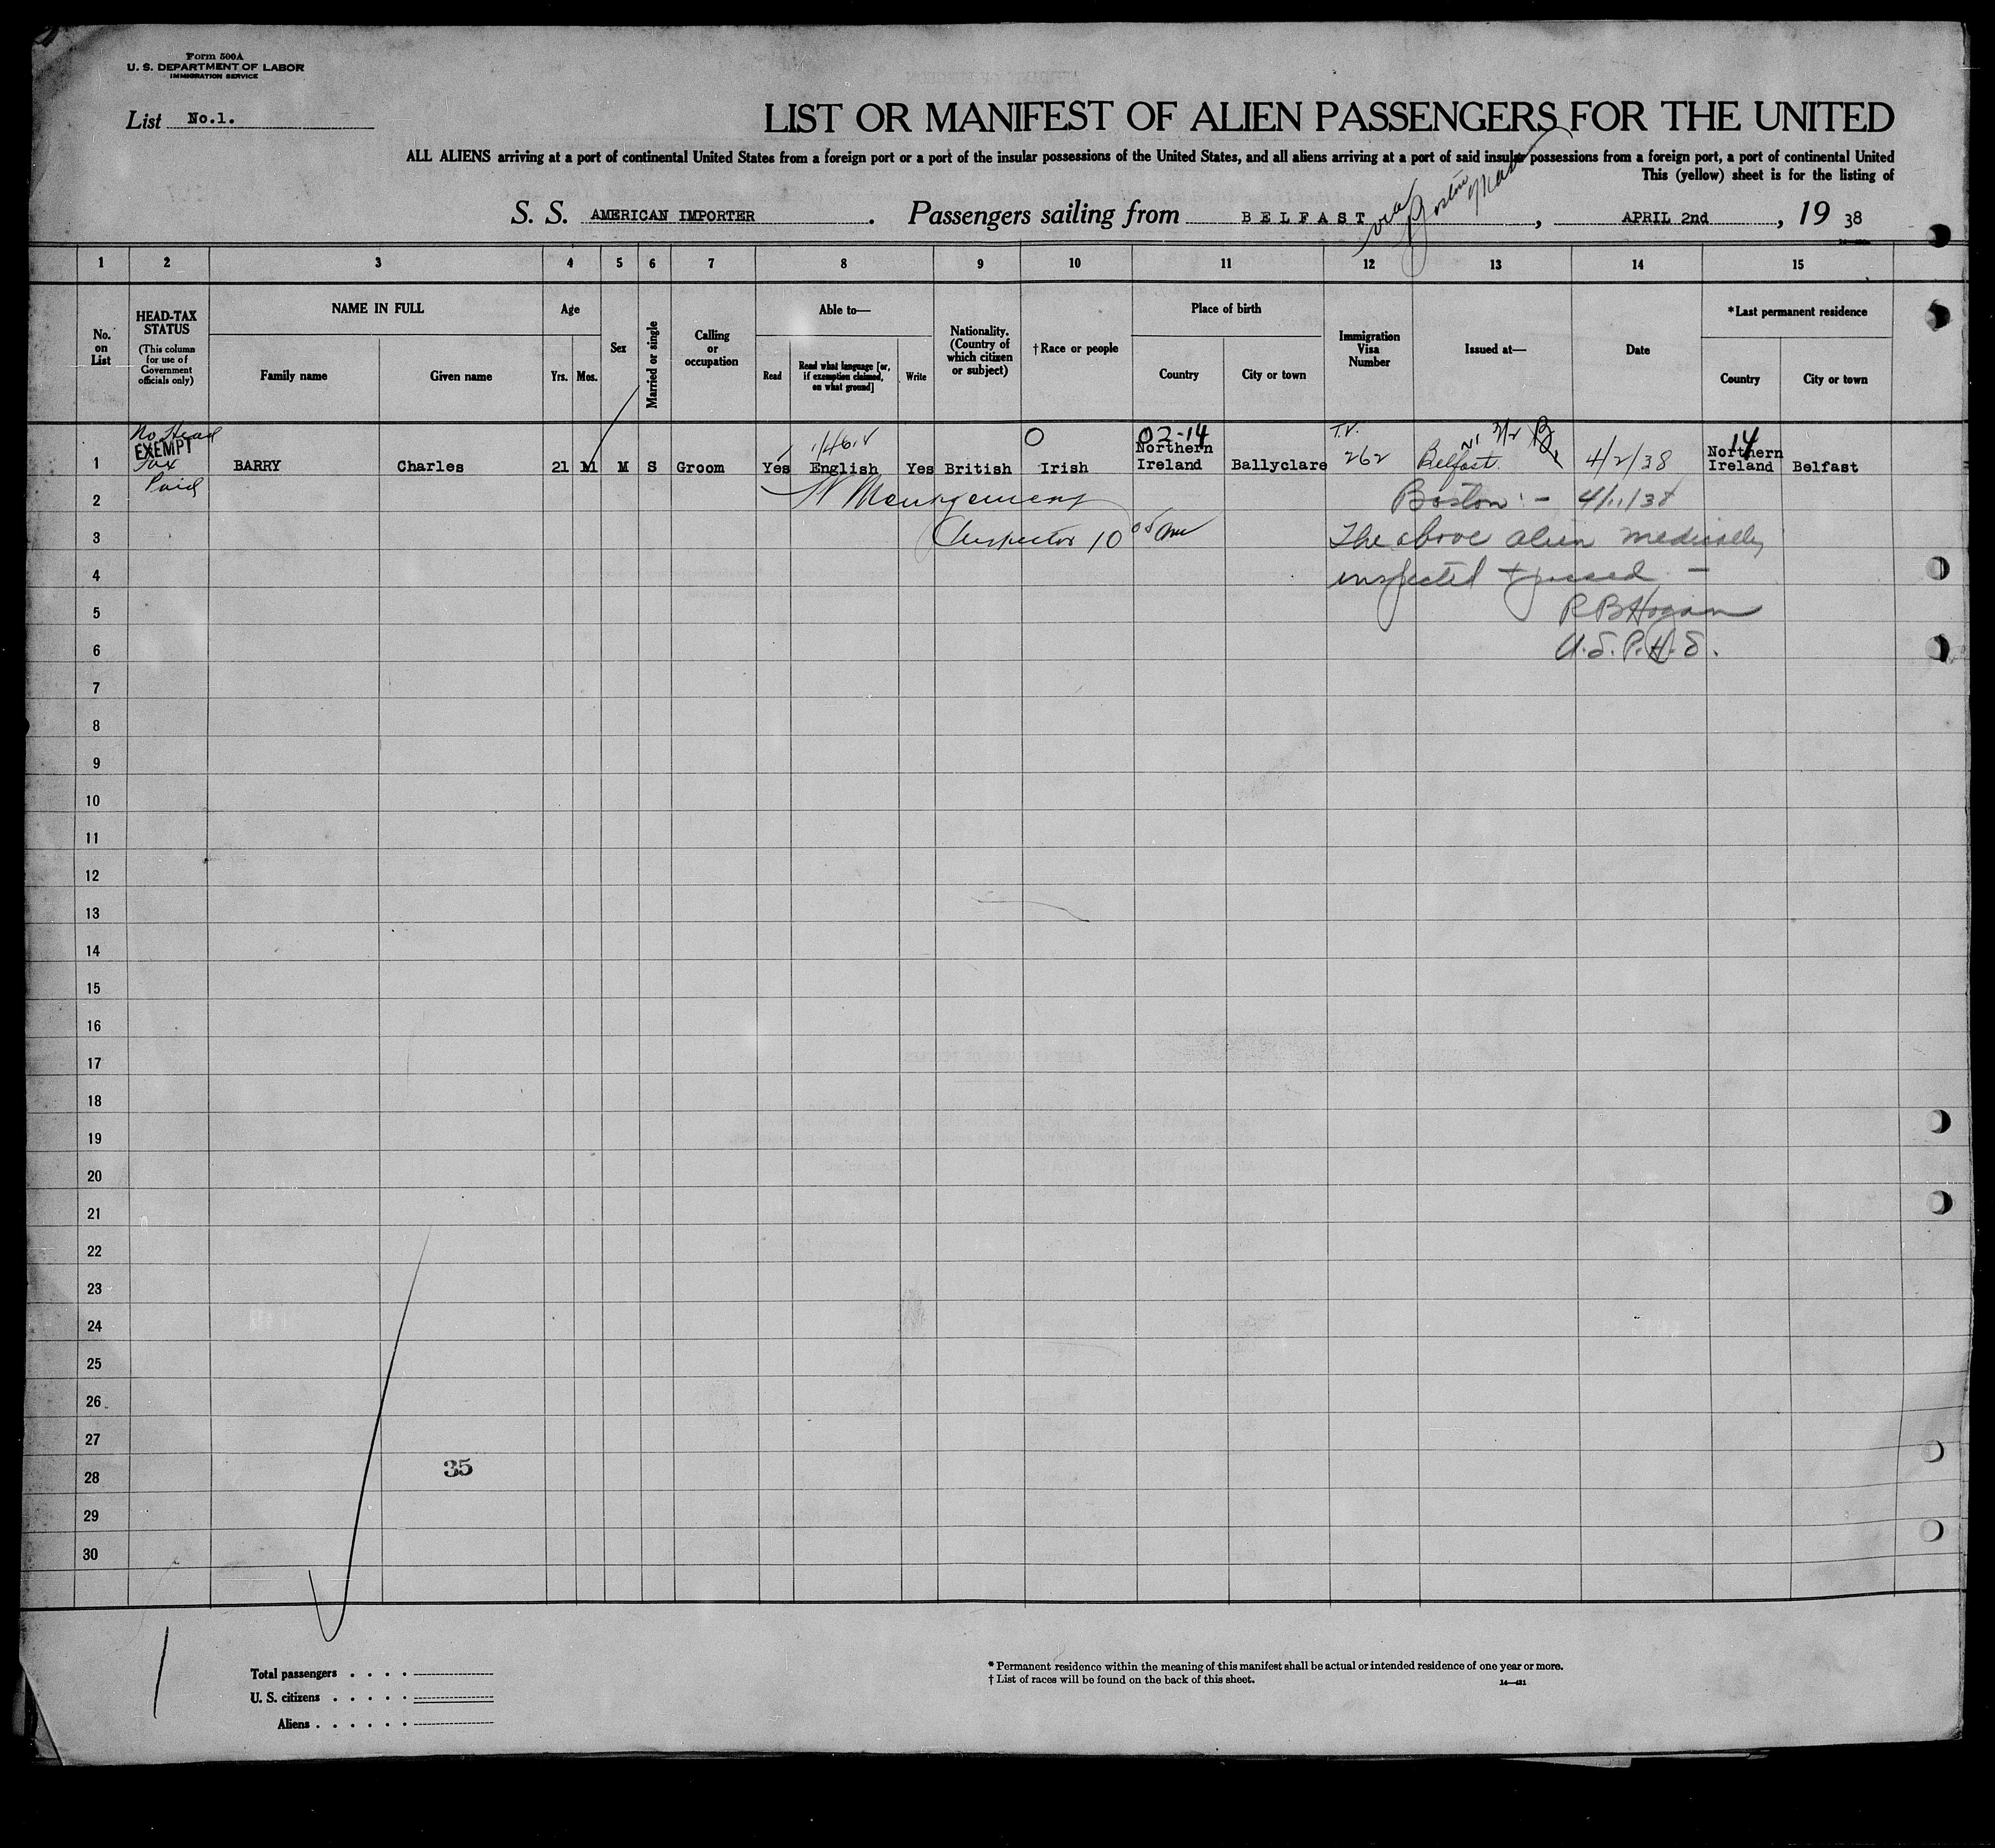 Form 500A
U. S. DEPARTMENT OF LABOR
IMMIGRATION SERVICE
List No.1.
LIST OR MANIFEST OF ALIEN PASSENGERS FOR THE UNITED
ALL ALIENS arriving at a port of continental United States from a foreign port or a port of the insular possessions of the United States, and all aliens arriving at a port of said insular possessions from a foreign port, a port of continental United
This (yellow) sheet is for the listing of
S. S. AMERICAN IMPORTER. Passengers sailing from BELFAST, APRIL 2nd, 19 38
via Boston Mass
1 2 3 4 5 6 7 8 9 10 11 12 13 14 15
No. on List
HEAD-TAX STATUS
(This column for use of Government officials only)
NAME IN FULL
Family name
Given name
Age
Yrs.
Mos.
Sex
Married or single
Calling or occupation
Able to—
Read
Read what language [or, if exemption claimed, on what ground]
Write
Nationality. (Country of which citizen or subject)
†Race or people
Place of birth
Country
City or town
Immigration Visa Number
Issued at—
Date
*Last permanent residence
Country
City or town
No Head
EXEMPT
Tax
Paid
02-14
T.V.
14
1 BARRY Charles 21 M M S Groom Yes English Yes British Irish Northern Ireland Ballyclare 262 Belfast 4/2/38 Northern Ireland Belfast
2 Boston :- 4/11/38
3 Inspector 10 The above alien medically
4 inspected + passed -
5 R B Hogan
6 U.S.P.H.S.
7
8
9
10
11
12
13
14
15
16
17
18
19
20
21
22
23
24
25
26
27
28 35
29
30
Total passengers . . . .
U. S. citizens . . . . .
Aliens . . . . . .
* Permanent residence within the meaning of this manifest shall be actual or intended residence of one year or more.
† List of races will be found on the back of this sheet.